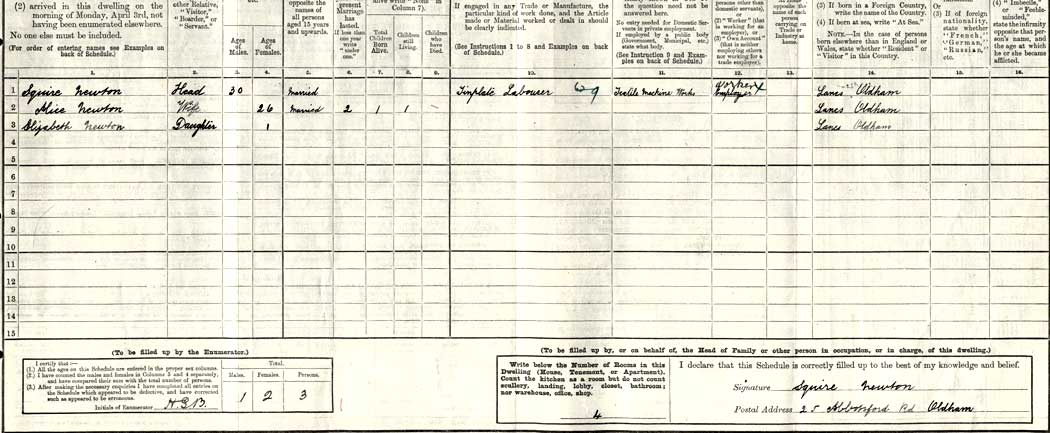 (2) arrived in this dwelling on the
morning of Monday, April 3rd, not
having been enumerated elsewhere.
No one else must be included.
(For order of entering names see Examples on
back of Schedule.)
other Relative,
"Visitor,"
"Boarder," or
"Servant."
Ages
of
Males.
Ages
of
Females.
opposite the
names of
all persons
aged 15 years
and upwards.
present
Marriage
has
lasted.
If less than
one year
write
"under
one."
Column 7).
Total
Children
Born
Alive.
Children
still
Living.
Children
who
have
Died.
If engaged in any Trade or Manufacture, the
particular kind of work done, and the Article
made or Material worked or dealt in should
be clearly indicated.
(See Instructions 1 to 8 and Examples on back
of Schedule.)
the question need not be
answered here.
No entry needed for Domestic Ser-
vants in private employment.
If employed by a public body
(Government, Municipal, etc.)
state what body.
(See Instruction 9 and Exam-
ples on back of Schedule.)
persons other than
domestic servants),
or
(2) "Worker" (that
is working for an
employer), or
(3) "Own Account"
(that is neither
employing others
nor working for a
trade employer).
opposite the
name of each
person
carrying on
Trade or
Industry at
home.
(3) If born in a Foreign Country,
write the name of the Country.
(4) If born at sea, write "At Sea."
NOTE.—In the case of persons
born elsewhere than in England or
Wales, state whether "Resident" or
"Visitor" in this Country.
(3) If of foreign
nationality,
state whether
"French,"
"German,"
"Russian,"
etc.
(4) "Imbecile,"
or "Feeble-
minded,"
state the infirmity
opposite that per-
son's name, and
the age at which
he or she became
afflicted.
1. 2. 3. 4. 5. 6. 7. 8. 9. 10. 11. 12. 13. 14. 15. 16.
1 Squire Newton Head 30 Married Tinplate Labourer Textile Machine Works Worker Lancs Oldham
2 Alice Newton Wife 26 Married 2 1 1 Lancs Oldham
3 Elizabeth Newton Daughter 1 Lancs Oldham
4
5
6
7
8
9
10
11
12
13
14
15
(To be filled up by the Enumerator.)
I certify that:—
(1.) All the ages on this Schedule are entered in the proper sex columns.
(2.) I have counted the males and females in Columns 3 and 4 separately,
and have compared their sum with the total number of persons.
(3.) After making the necessary enquiries I have completed all entries on
the Schedule which appeared to be defective, and have corrected
such as appeared to be erroneous.
Initials of Enumerator
Total.
Males. Females. Persons.
1 2 3
(To be filled up by, or on behalf of, the Head of Family or other person in occupation, or in charge, of this dwelling.)
Write below the Number of Rooms in this
Dwelling (House, Tenement, or Apartment).
Count the kitchen as a room but do not count
scullery, landing, lobby, closet, bathroom;
nor warehouse, office, shop.
4
I declare that this Schedule is correctly filled up to the best of my knowledge and belief.
Signature Squire Newton
Postal Address 25 Abbotsford Rd Oldham